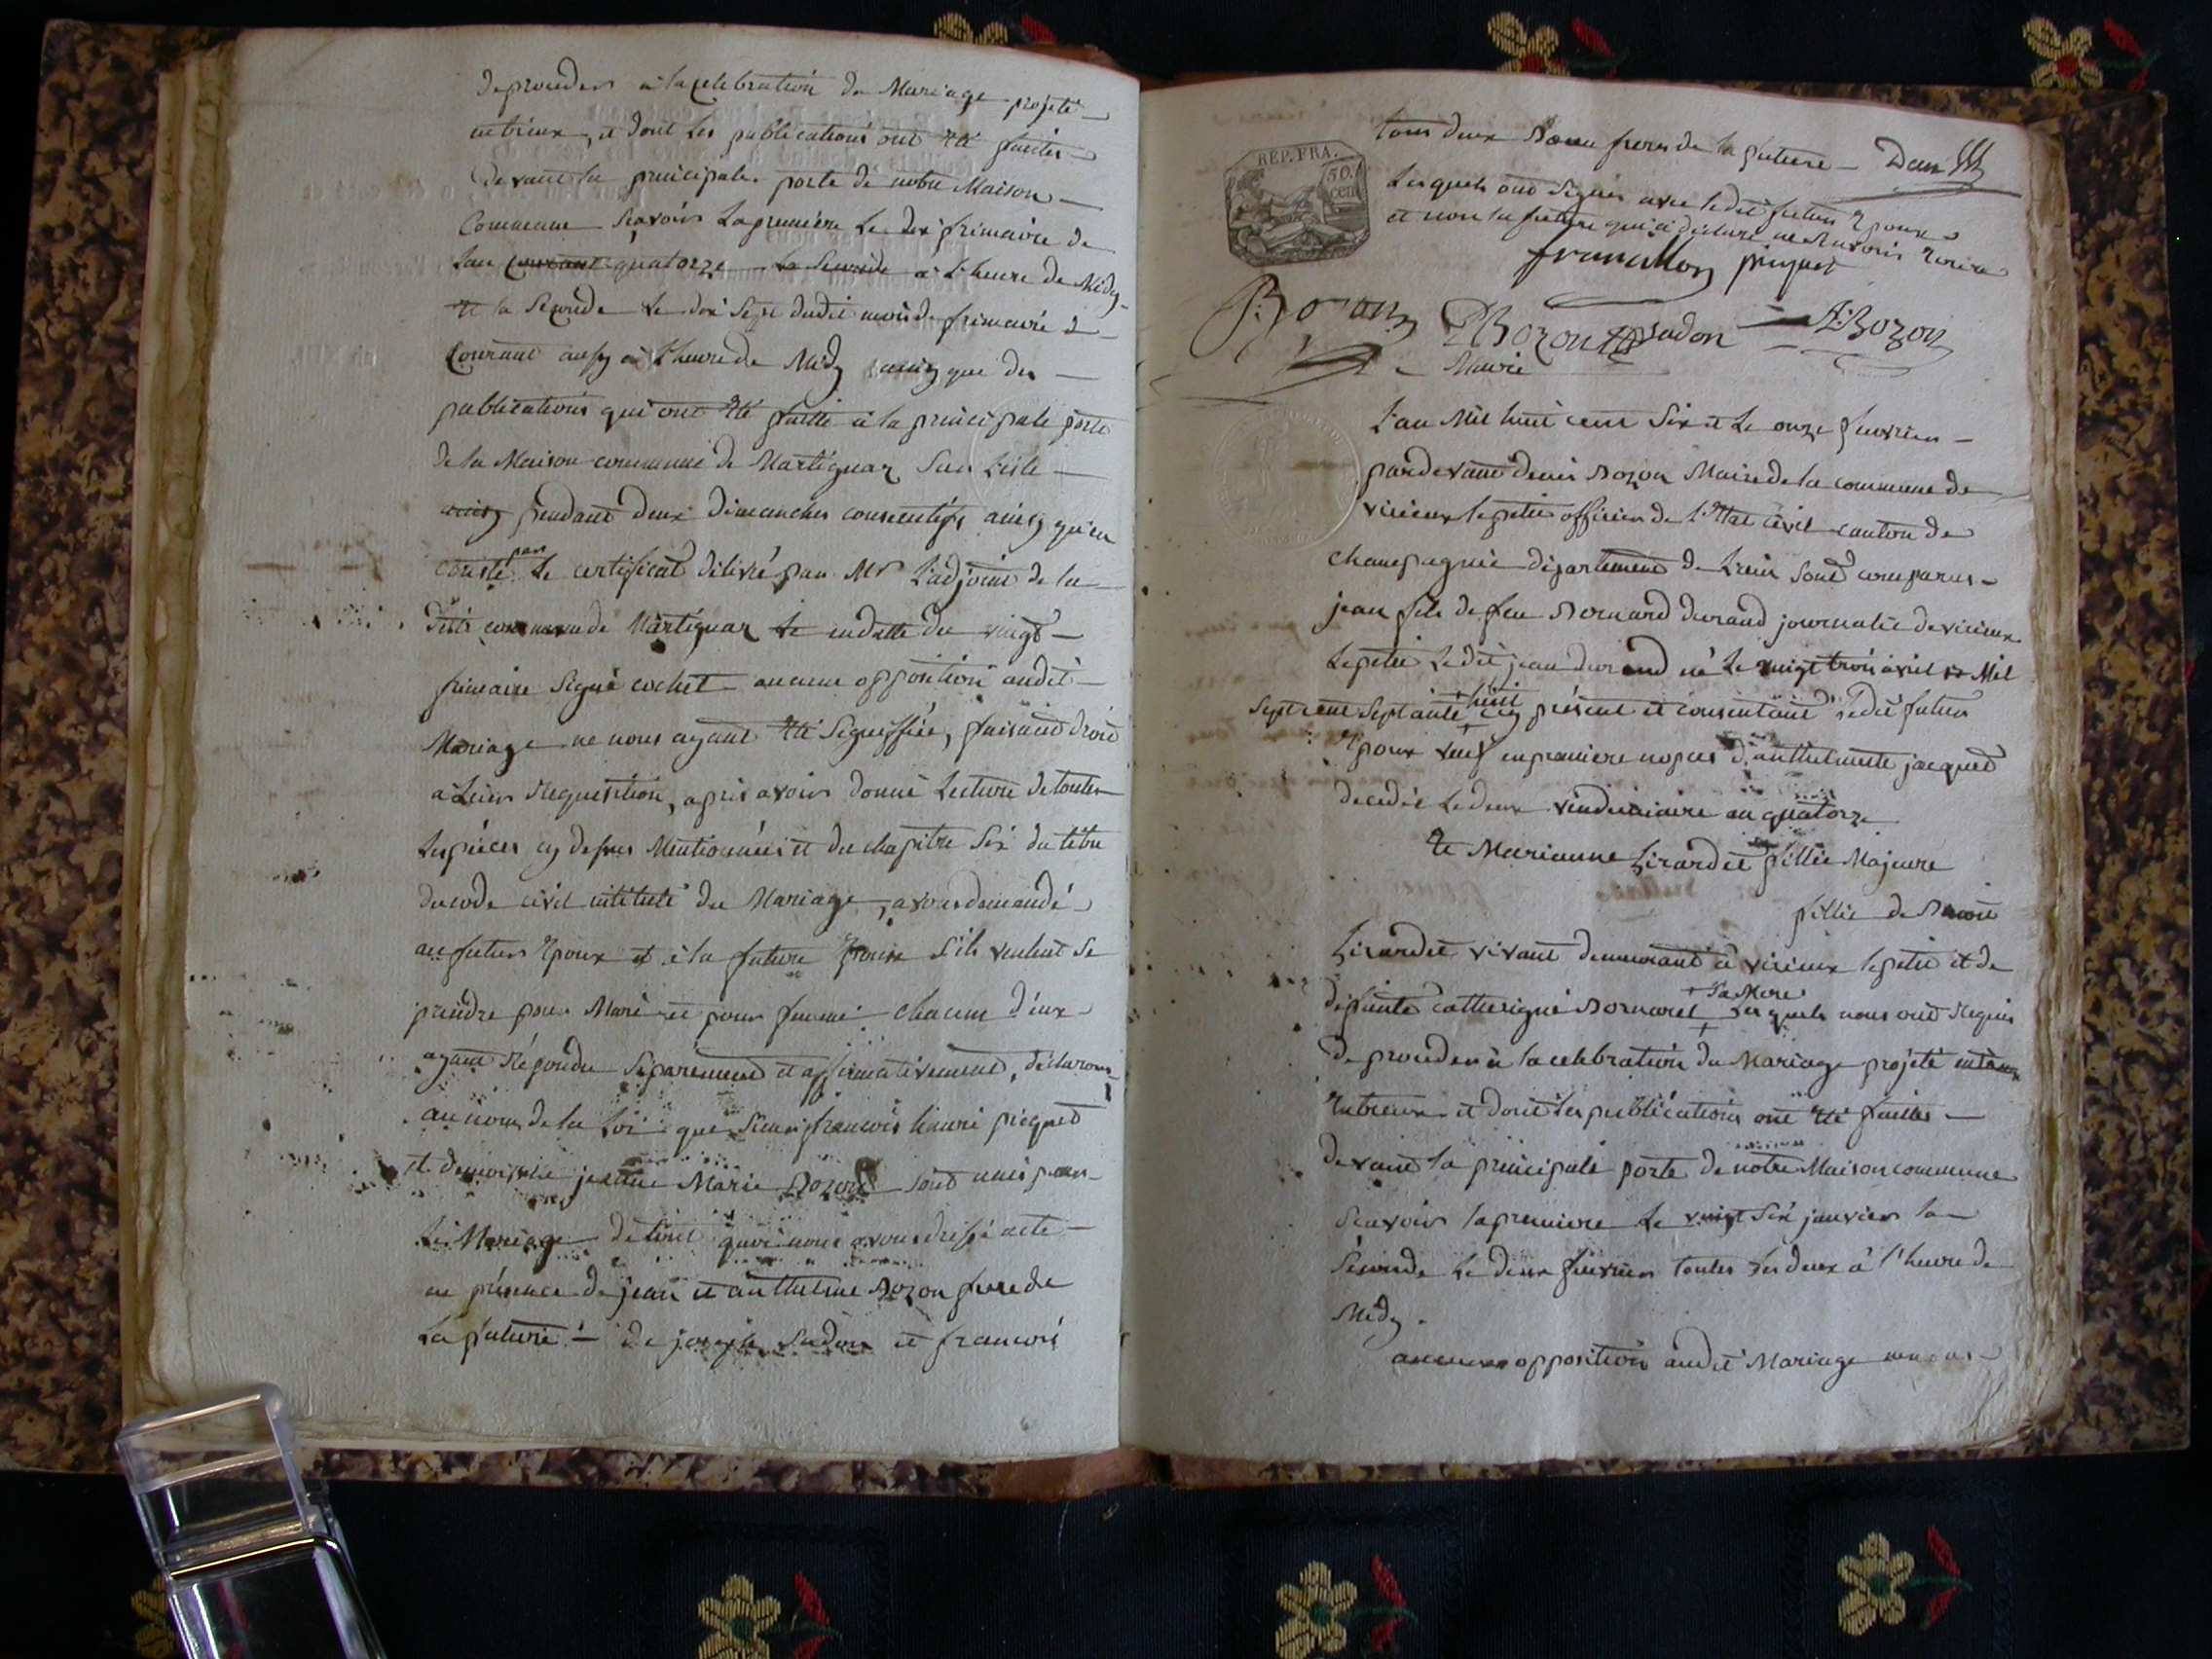 de proceder a la celebration du Mariage projeté
entreux, et dont les publications ont été faites
devant la principale porte de notre Maison
Commune Scavoir La premiere Le dix frimaire de
lan courant quatorze La Seconde a L'heure de Midy
et la Seconde Le dix Sept dudit mois de frimaire
Courant aussy à L'heure de Midy ainsy que des
publications qui ont été faitte a la principale porte
de la Maison commune de Martignaz
ainsy pendant deux Dimanches consecutifs ainsy qu'en
conste par Le certificat délivré par Mr L'adjoint de la
ditte commune de Martignaz Le en datte du vingt
frimaire Signé cochet aucune opposition audit
Mariage ne nous ayant été Signiffiée, faisant droit
a Leur Requisition, apres avoir donné Lecture de toutes
Les pièces cy dessus Mentionnées et du chapitre Six du titre
du code civil intitulé du Mariage, avons demandé
au futur Epoux et à la future Epouse S'ils veulent Se
prendre pour Mari et pour femme chacun d'eux
ayant Répondu Séparement et affirmativement, déclarons
au nom de la Loi que Sieur francois henri picquet
et demoiselle jeanne Marie Bozon Sont unis par
Le Mariage de tout quoi nous avons dressé acte
en présence de jean et anthelme Bozon frere de
La future de joseph Sadon et francois
REP. FRA.
50
cen
tous deux Beau freres de la future
Lesquels ont Signés avec ledit futur Epoux
et non la future qui a déclaré ne Savoir
francillon picquet
Bozon
D Bozon Sadon A. Bozon
Maire
L'an Mil huit cent Six et Le onze fevrier
pardevant denis Bozon Maire de la commune de
virieux le petit officier de L'Etat civil canton de
champagnie département de L'ain Sont comparus
jean fils de feu Bernard durand journalié de virieux
Le petit Ledit jean durand né Le vingt trois avril Mil
Sept cent Septante huit présent et consentant Ledit futur
Epoux veuf en premiere nopces d'anthelmette jacquet
decedée Le deux vendemiaire an quatorze
Et Marianne Lirardet fillie Majeure
fillie de Benoit
Lirardet vivant demeurant a virieux le petit et de
deffunte Catherigne Bornaret Sa Mere Lesquels nous ont Requis
de proceder à la celebration du Mariage projeté entreux
Entreux et dont Les publications ont été faittes
devant la principale porte de notre Maison commune
Scavoir la premiere Le vingt Six janvier la
Seconde Le deux fevrier toutes Les deux à l'heure de
Midy.
aucune opposition audit Mariage